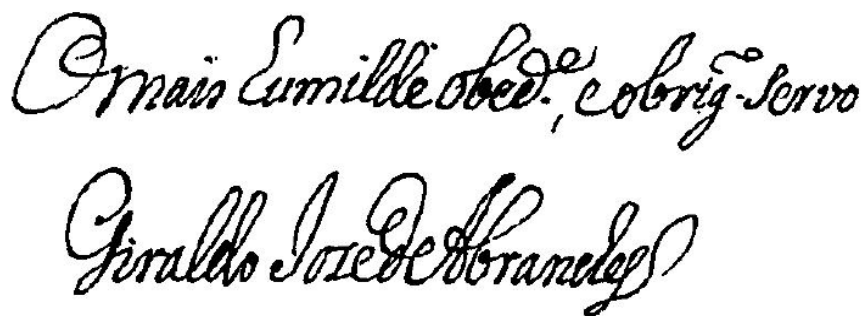 O mais humilde obed.^e, e obrig.^o servo
Giraldo Joze de Abranches